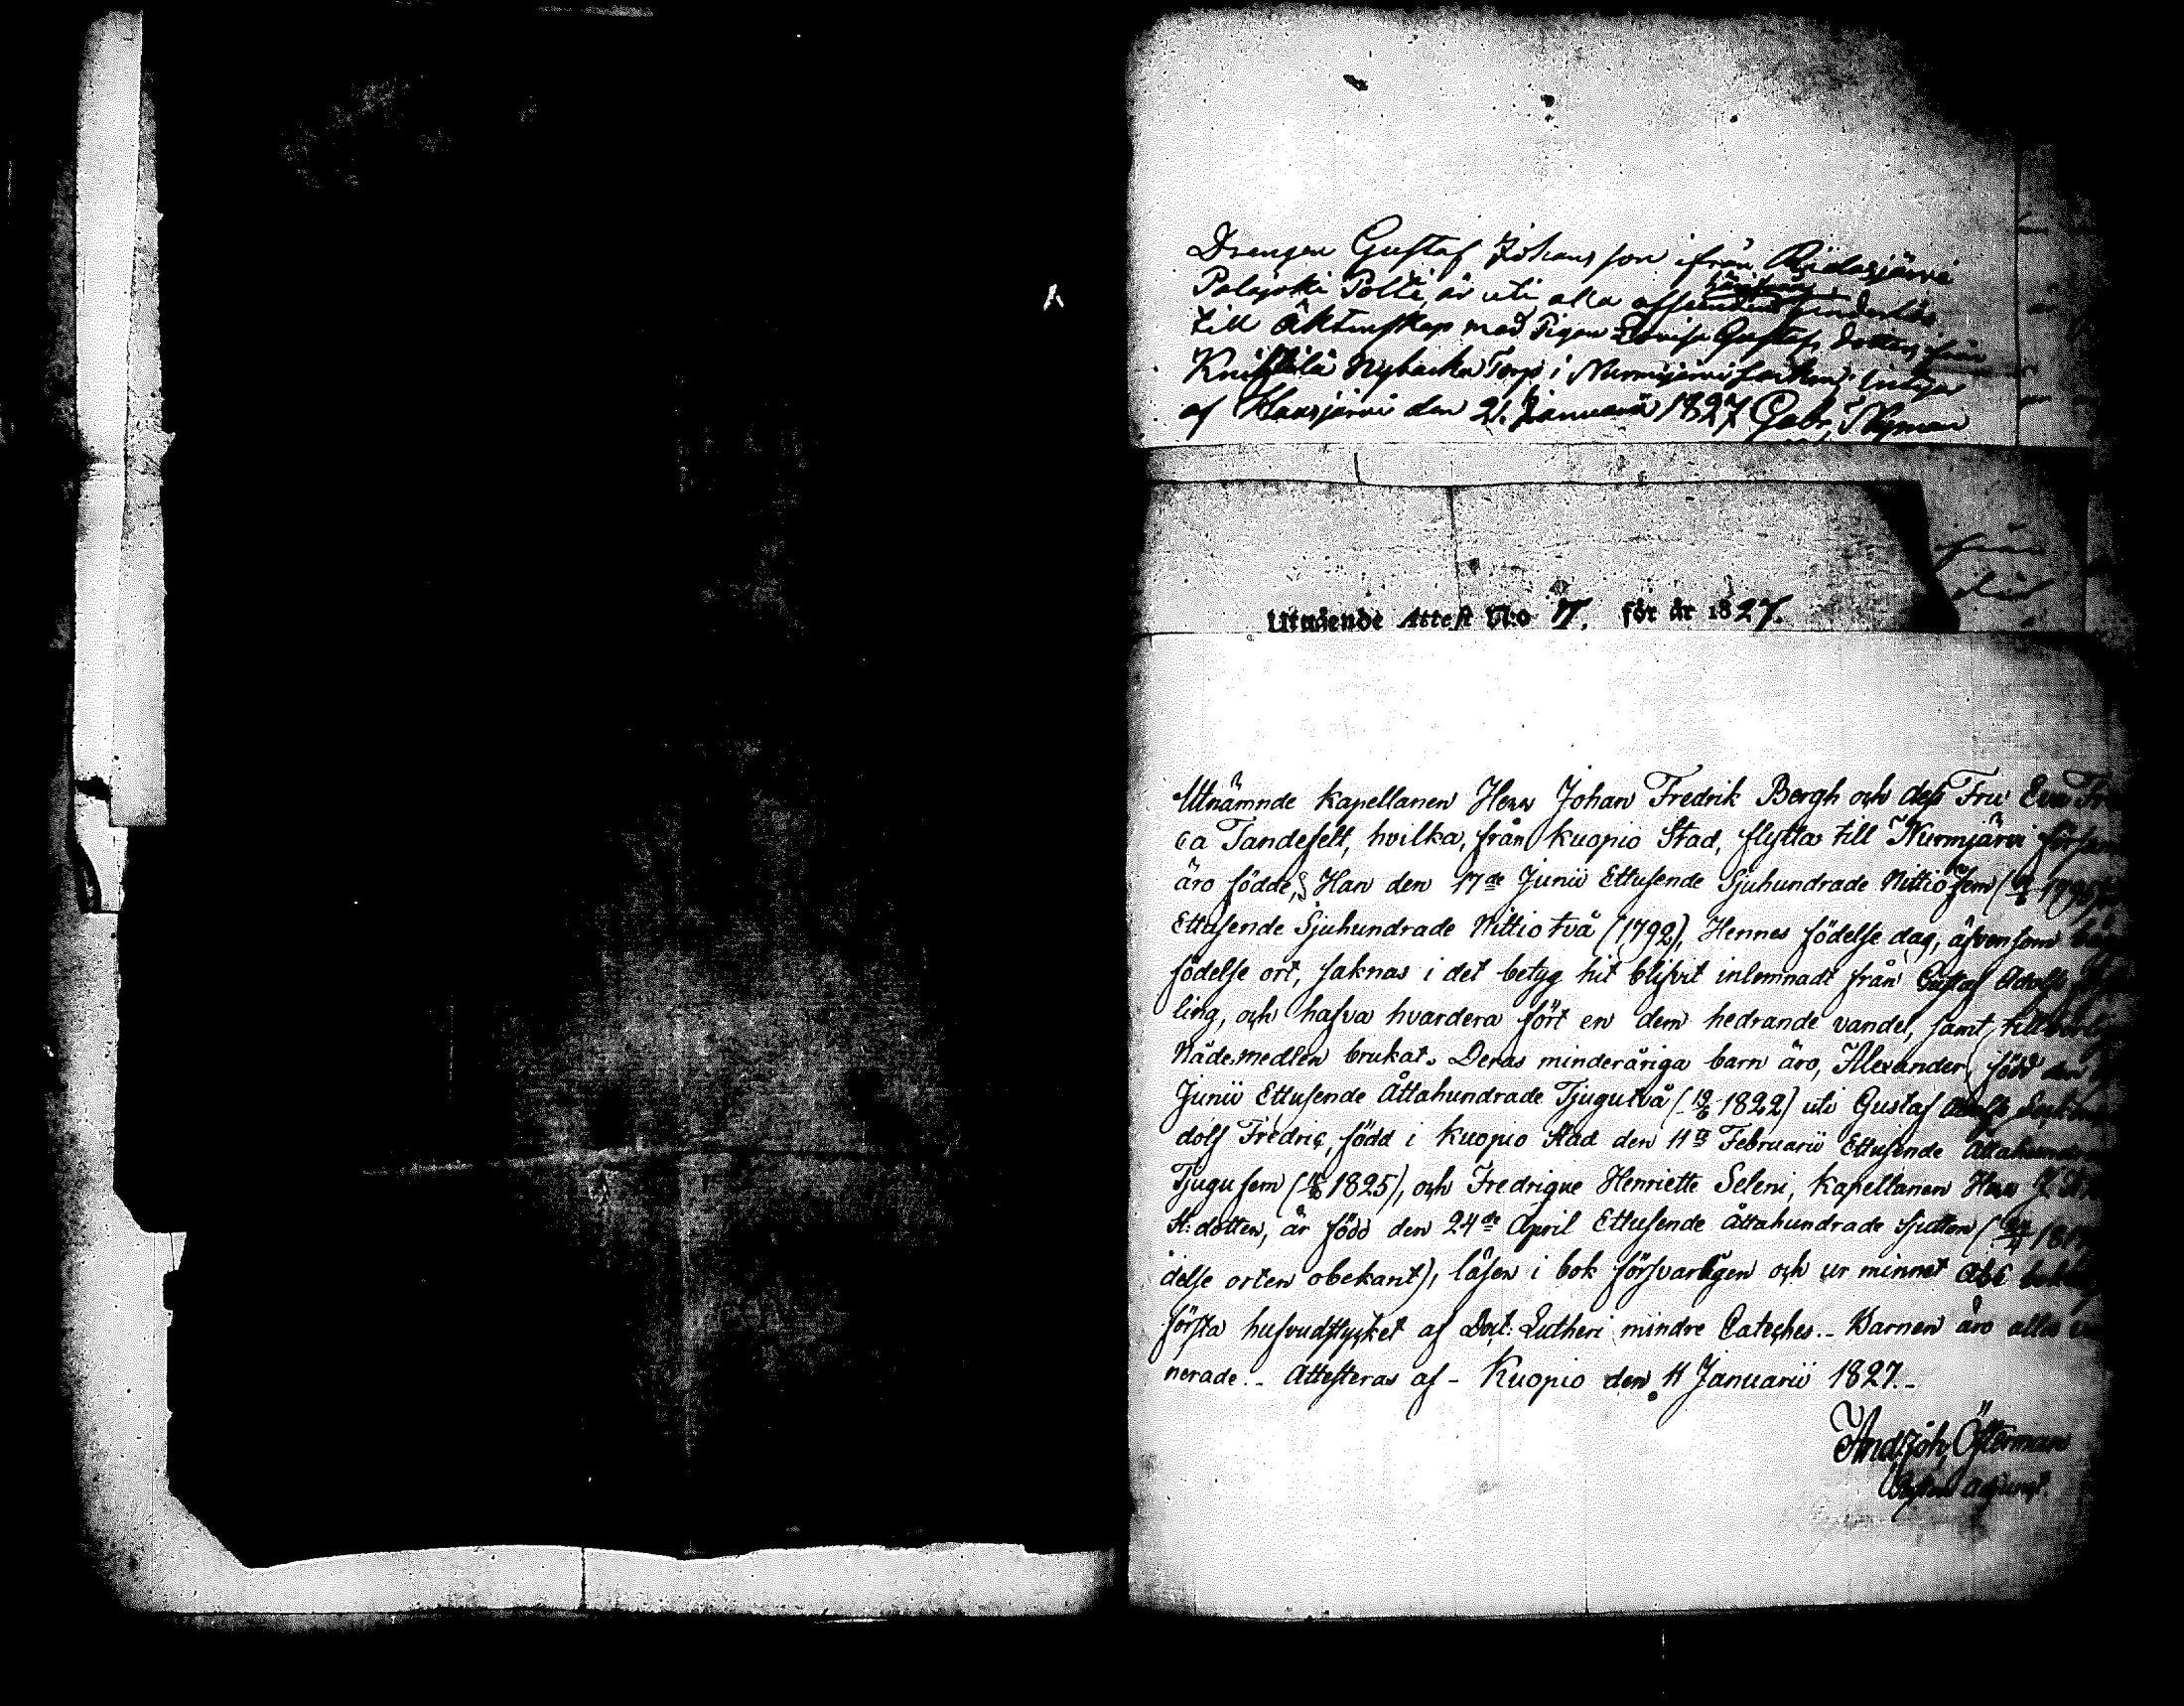 Drengen Gustaf Johansson ifrån Ridasjärvi
Palojoki Polti, är uti alla afseenden hinderlös
till Äktenskap med Pigan Lovisa Gustafs dotter, från
Knihtilä Nybacka Torp i Nurmijärvi Socken, intygar
af Hausjärvi den 21. Januarii 1827 Gabr. Nyman
från
Utgående Attest N:o 17. för år 1827.
Utnämnde kapellanen Herr Johan Fredrik Bergh och dess Fru Eva Fre
ca Tandefelt, hvilka, från Kuopio Stad, flytta till Nurmjärvi försam
äro födde, Han den 17de Junii Ettusende Sjuhundrade Nittiofem (17/6 1795),
Ettusende Sjuhundrade Nittiotvå (1792), Hennes födelse dag, äfvensom
födelse ort, saknas i det betyg hit blifvit inlemnadt från Gustaf Adolfs
ling, och hafva hvardera fört en dem hedrande vandel, samt
Nådemedlen brukat. Deras minderåriga barn äro, Alexander, född den
Junii Ettusende Åttahundrade Tjugutvå (19/6 1822) uti Gustaf Adolfs
dolf Fredric, född i Kuopio Stad den 11te Februarii Ettusende Åttahundra
Tjugufem (11/2 1825), och Fredrique Henriette Seleni, kapellanen Herr J. Fr
St: dotter, är född den 24de April Ettusende Åttahundrade Sjutton (24/4 1817
delse orten obekant), läsen i bok försvarligen och ur minnet Abc
första hufvudstycket af Doct: Lutheri mindre Cateches. - Barnen äro alla
nerade. - Attesteras af - Kuopio den 11 Januarii 1827. -
And. Joh. Österman
Adjunct.